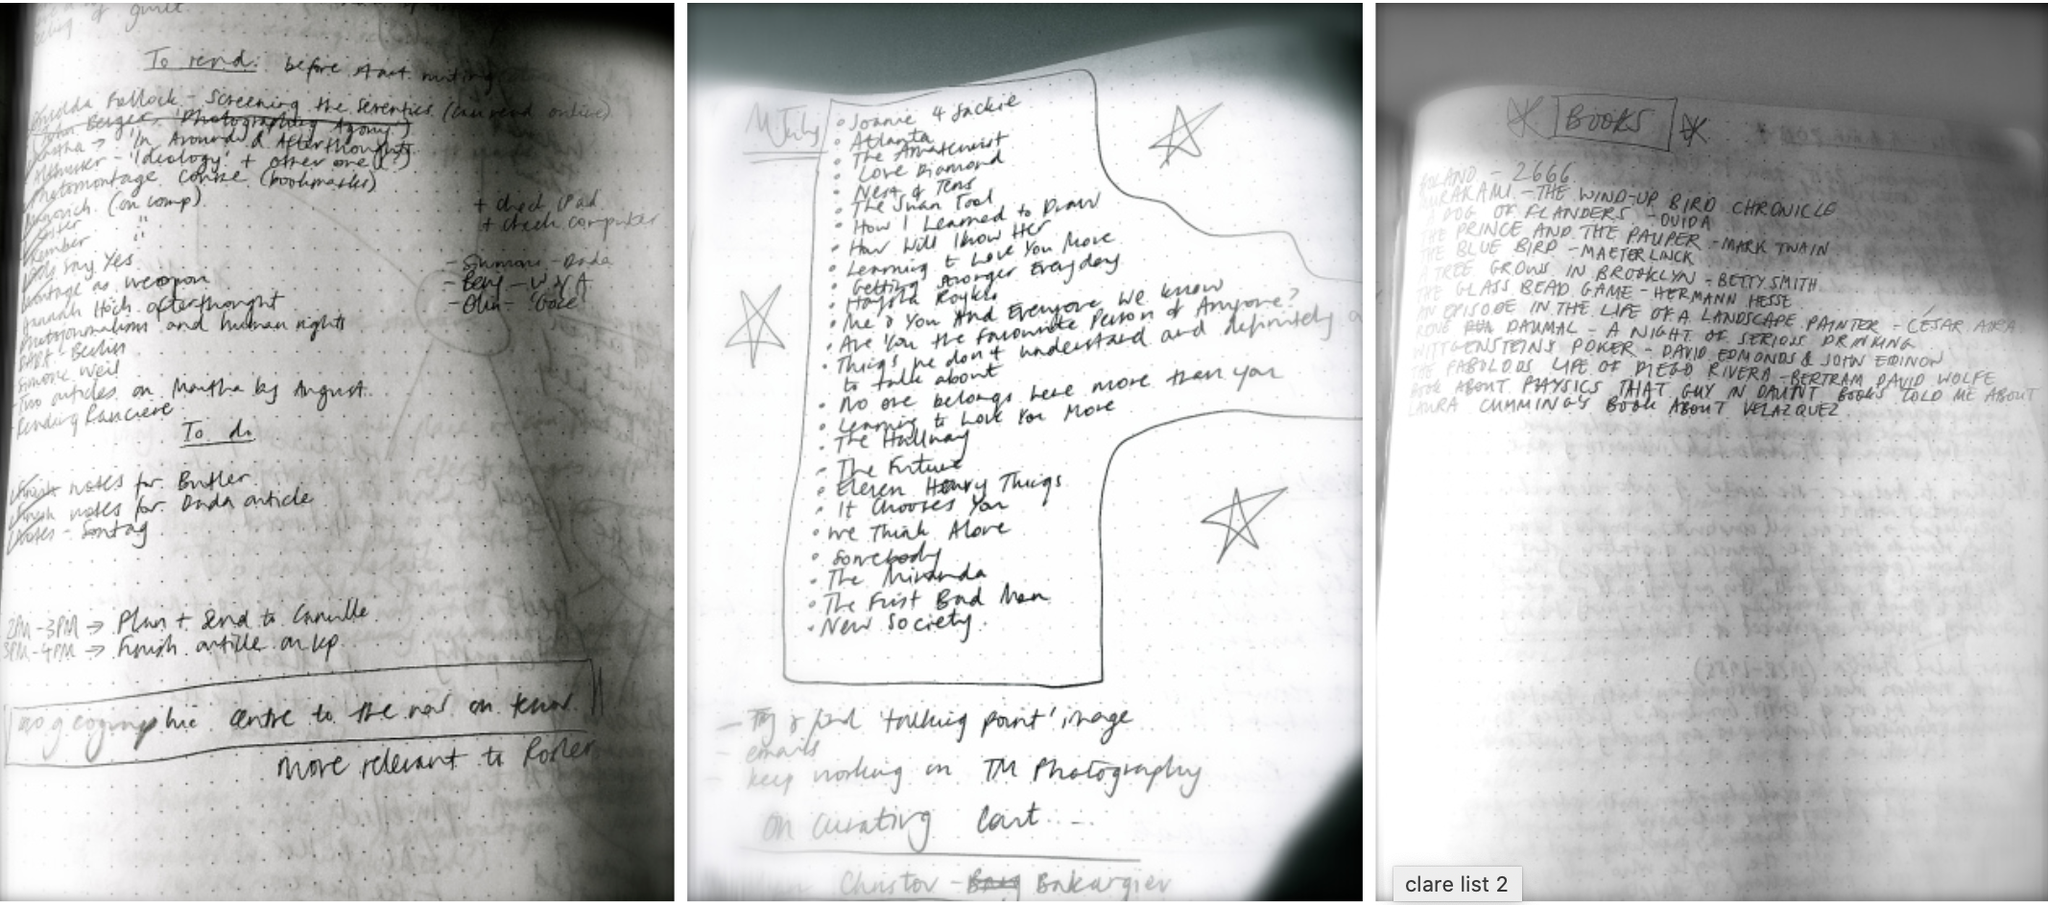 of guilt.
To read: before start writing
Griselda Pollock - Screening the Seventies (can read online)
John Berger, 'Photography Agony'
Martha → 'In, Around & Afterthoughts
Althusser - 'Ideology' + other one (?)
Photomontage course (bookmarks)
(on comp)
"
"
say Yes
Montage as weapon
Hannah Höch afterthought
Photojournalism and human rights
Berlin
Simone Weil
Two articles on Martha by August.
Reading Ranciere
+ check iPad
+ check computer
- Simmons - Dada
- Benj - W
- Olin -
To do
Finish notes for Butler
Finish notes for Dada article
Notes - Sontag
2PM-3PM → Plan + Send to Camille
3PM-4PM → Finish article on kp
no geographic centre to the war on terror
more relevant to Rosler
M July
• Joanie 4 Jackie
• Atlanta
• The Amateurist
• Love Diamond
• Nest of Tens
• The Swan Tool
• How I Learned to Draw
• How Will I Know Her
• Learning to Love You More
• Getting Stronger Everyday
• Haysha Royko
• Me & You And Everyone We know
• Are You the Favourite Person of Anyone?
• Things we don't understand and definitely
to talk about
• No one belongs here more than you
• Learning to Love You More
• The Hallway
• The Future
• Eleven Heavy Things
• It Chooses You
• We Think Alone
• Somebody
• The Miranda
• The First Bad Man
• New Society
- Try & find 'talking point' image
- emails
- keep working on TM Photography
On Curating Cont...
Christov - Bakargiev
BOOKS
BOLANO - 2666
MURAKAMI - THE WIND-UP BIRD CHRONICLE
A DOG OF FLANDERS - OUIDA
THE PRINCE AND THE PAUPER - MARK TWAIN
THE BLUE BIRD - MAETERLINCK
A TREE GROWS IN BROOKLYN - BETTY SMITH
THE GLASS BEAD GAME - HERMANN HESSE
AN EPISODE IN THE LIFE OF A LANDSCAPE PAINTER - CÉSAR AIRA
RENÉ DAUMAL - A NIGHT OF SERIOUS DRINKING
WITTGENSTEINS POKER - DAVID EDMONDS & JOHN EDINOW
THE FABULOUS LIFE OF DIEGO RIVERA - BERTRAM DAVID WOLFE
BOOK ABOUT PHYSICS THAT GUY IN DAUNT BOOKS TOLD ME ABOUT
LAURA CUMMING'S BOOK ABOUT VELAZQUEZ
clare list 2